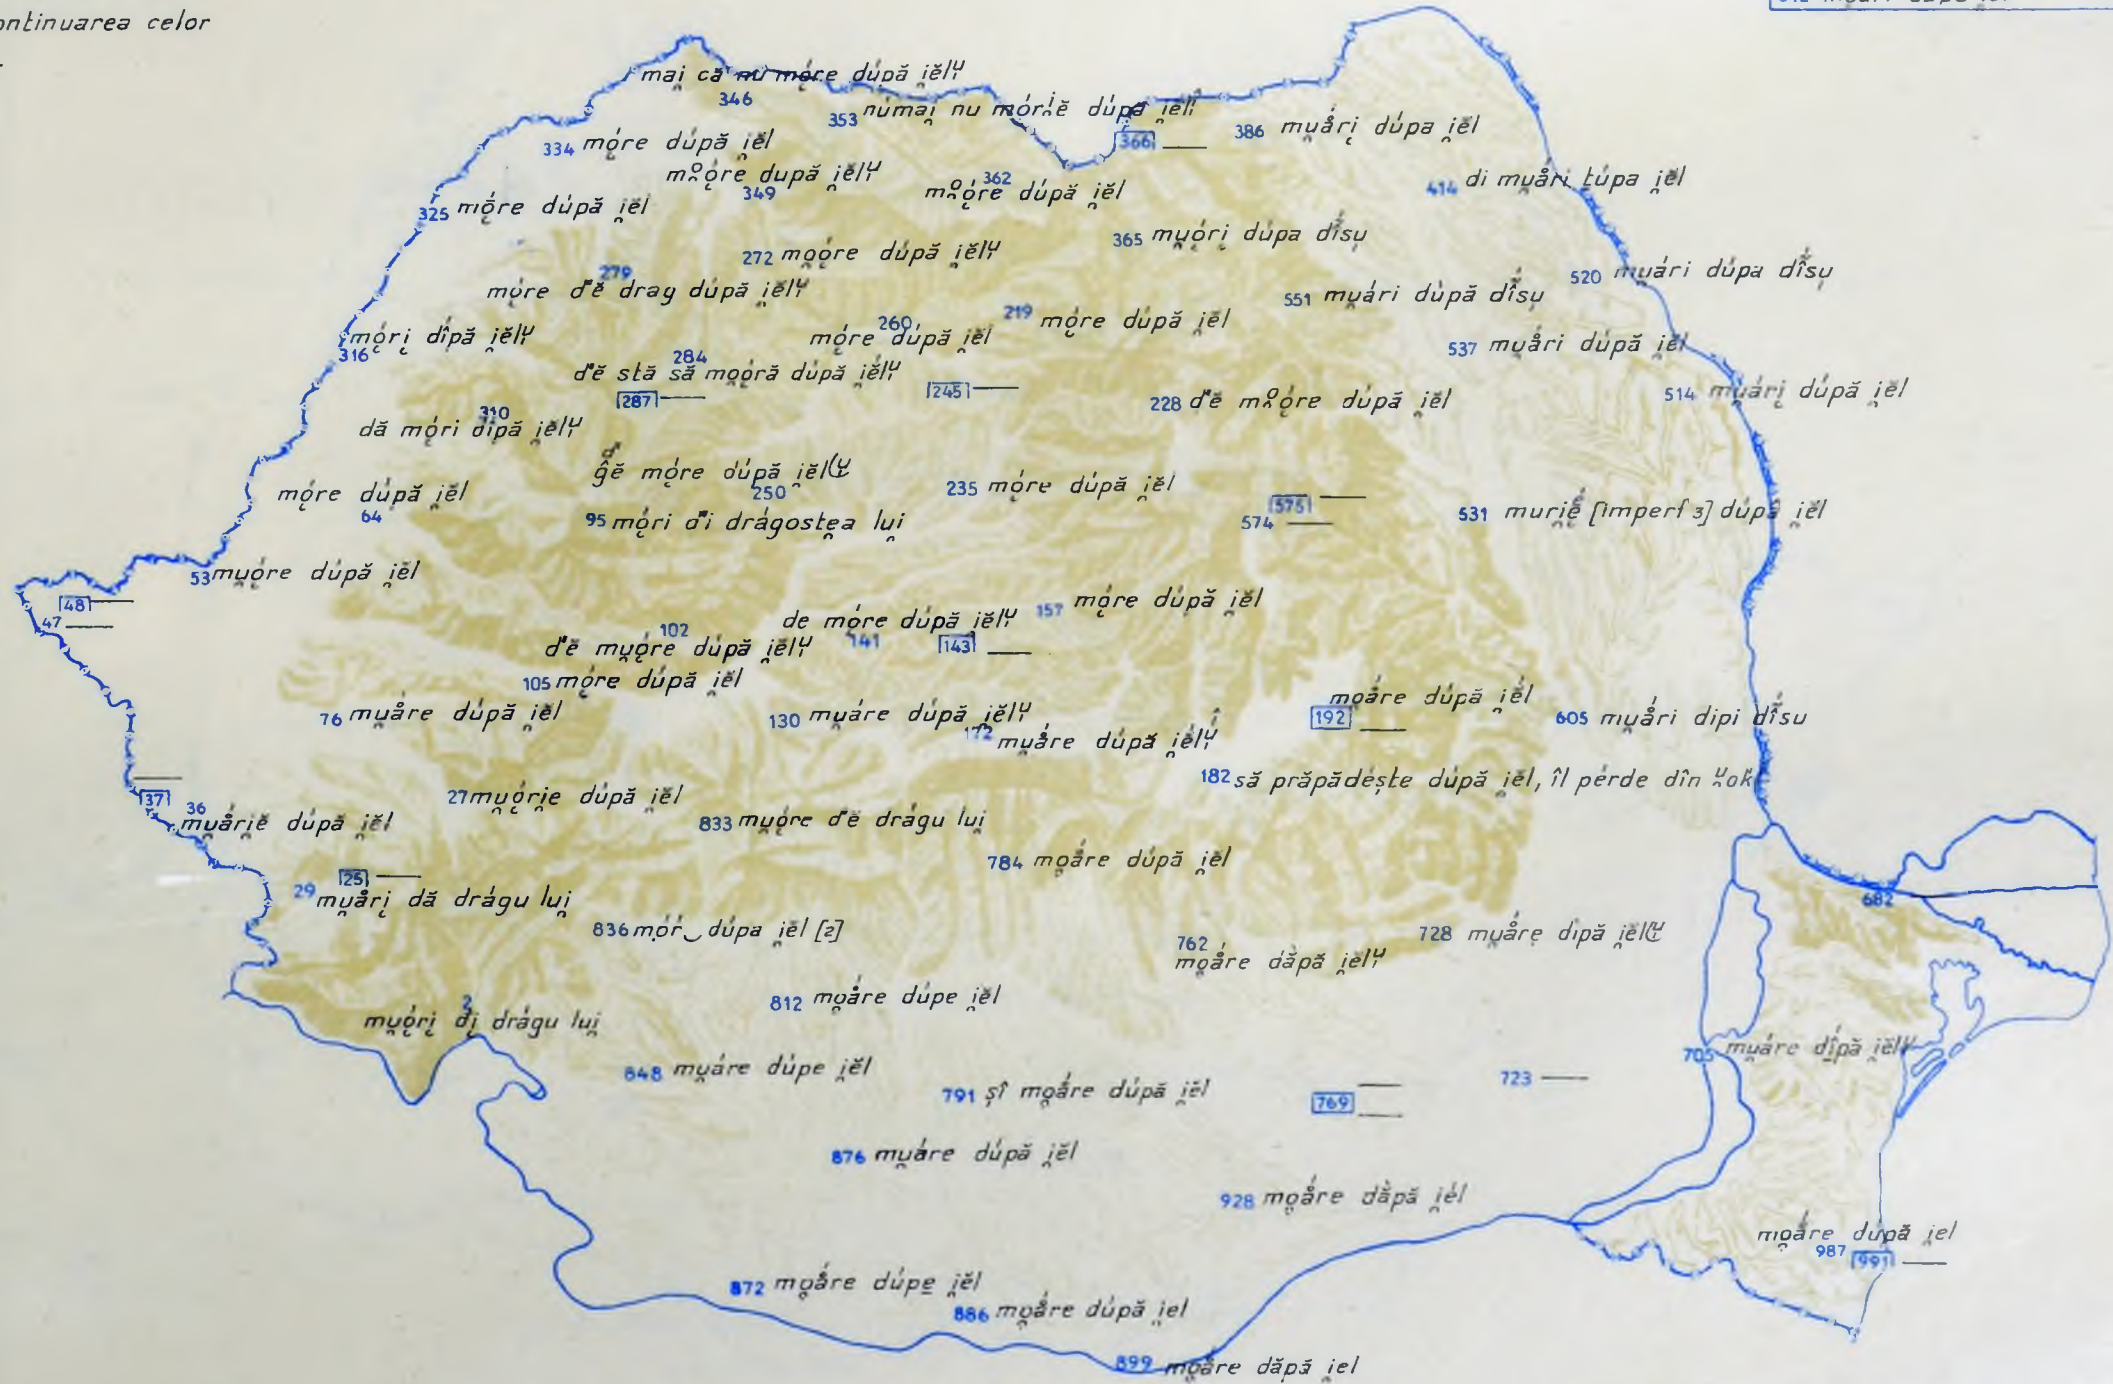 ontinuarea celor
mai̯ că nu mo̯áre dúpă i̯ĕlʮ
346
353 númai̯ nu mórʹĕ dúpă i̯ĕlʮ
334 mo̯óre dúpă i̯ĕl
366
386 mu̯åri̯ dúpa i̯ĕl
mo̯óre după i̯ĕlʮ
349
362
mo̯óre dúpă i̯ĕl
414 di mu̯åri túpa i̯ĕl
325 mo̯óre dúpă i̯ĕl
365 mu̯óri̯ dúpa dîsu̯
272 mo̯óre dúpă i̯ĕlʮ
279
more d'ĕ drag dúpă i̯ĕlʮ
520 mu̯ári dúpa dîsu̯
551 mu̯ári dúpă dîsu̯
316 móri̯ dîpă i̯ĕlʮ
260
móre dúpă i̯ĕl
219 móre dúpă i̯ĕl
537 mu̯åri dúpă i̯ĕl
284
d'ĕ stă să mo̯óră dúpă i̯ĕlʮ
287
245
228 d'ĕ mo̯óre dúpă i̯ĕl
514 mu̯ári̯ dúpă i̯ĕl
310
dă móri dîpă i̯ĕlʮ
g̑ĕ móre dúpă i̯ĕl
250
64 móre dúpă i̯ĕl
235 móre dúpă i̯ĕl
95 móri d'i drágoste̯a lui̯
575
574
531 murié̯ [imperf 3] dúpă i̯ĕl
53 mu̯óre dúpă i̯ĕl
48
47
157 móre dúpă i̯ĕl
de móre dúpă i̯ĕlʮ
141
143
102
d'ĕ mu̯óre dúpă i̯ĕlʮ
105 móre dúpă i̯ĕl
76 mu̯åre dúpă i̯ĕl
130 mu̯áre dúpă i̯ĕlʮ
172 mu̯åre dúpă i̯ĕlʮ
mo̯åre dúpă i̯ĕl
192
605 mu̯åri dipi dîsu
182 să prăpădéște dúpă i̯ĕl, îl pérde dîn
37
36 mu̯årie̯ dúpă i̯ĕl
27 mu̯órie dúpă i̯ĕl
833 mu̯óre d'ĕ drágu lui̯
784 mo̯åre dúpă i̯ĕl
25
29 mu̯åri̯ dă drágu lui̯
682
836 mór‿ dúpa i̯ĕl [2]
762
mo̯åre dắpă i̯ĕlʮ
728 mu̯åre dipă i̯ĕl
812 mo̯åre dúpe i̯ĕl
2
mu̯óri̯ di̯ drágu lui̯
848 mu̯áre dúpe i̯ĕl
791 șî mo̯åre dúpă i̯ĕl
769
723
705 mu̯áre dîpă i̯ĕlʮ
876 mu̯áre dúpă i̯ĕl
928 mo̯åre dắpă i̯ĕl
mo̯åre dúpă i̯el
987 991
872 mo̯åre dúpe i̯ĕl
886 mo̯åre dúpă i̯el
899 mo̯åre dắpă i̯el